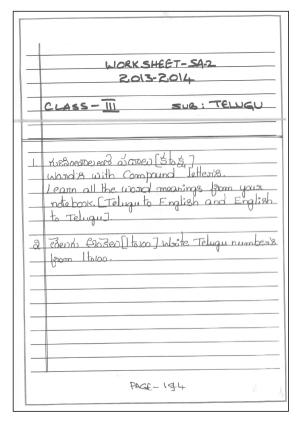 WORKSHEET-SA-2
2013-2014
CLASS-III SUB: TELUGU
1. గుణింతాలతో పదాలు [క-ఱ]
Words with Compound letters.
Learn all the word meanings from your
notebook. [Telugu to English and English
to Telugu]
2. తెలుగు అంకెలు [1to100] Write Telugu numbers
from 1to100.
PAGE-194